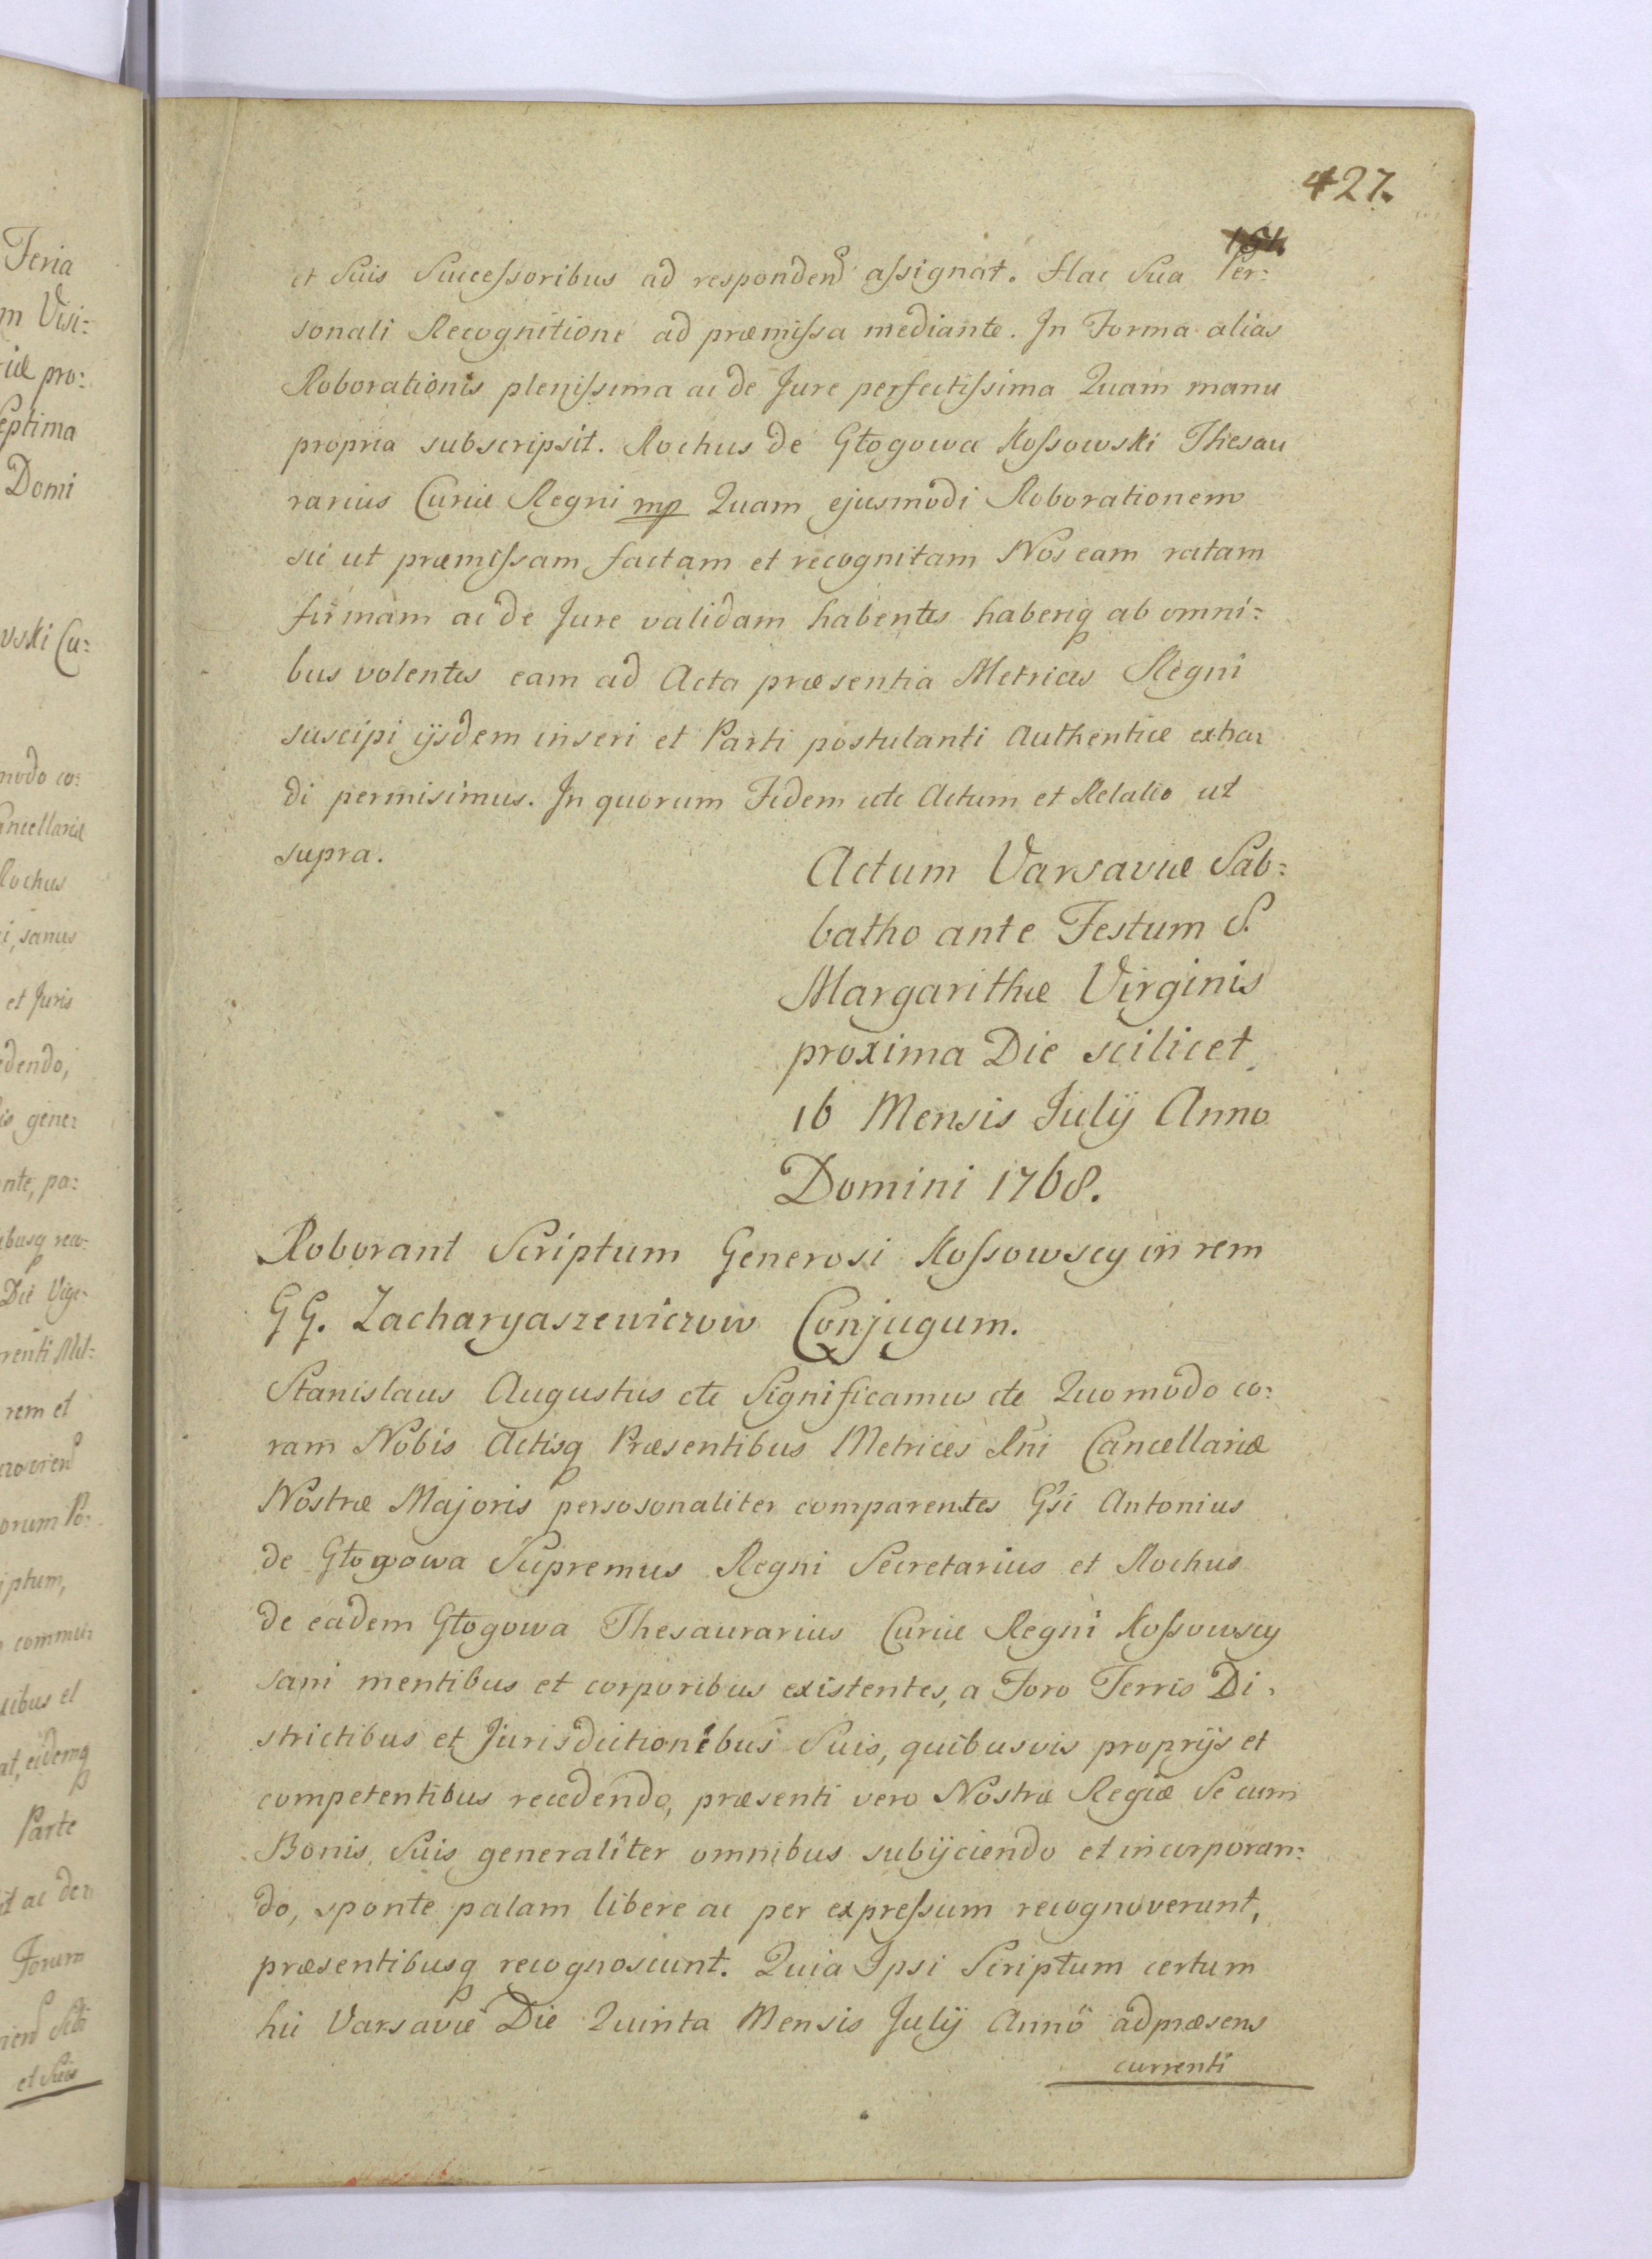 427.
et Suis Succeſsoribus ad respondend aſsignat. Hac Sua Per:
sonali Recognitione ad præmiſsa mediante. In Forma alias
Roborationis pleniſsima ac de Jure perfectiſsima Quam manu
propria subscripsit. Rochus de Głogowa Koſsowski Thesau
rarius Curiæ Regni mp Quam ejusmodi Roborationem
sic ut præmiſsam factam et recognitam Nos eam ratam
firmam ac de Jure validam habentes haberiq ab omni:
bus volentes eam ad Acta præsentia Metrices Regni
suscipi ijsdem inseri et Parti postulanti Authentice extra:
di permisimus. In quorum Fidem etc Actum et Relatio ut
supra.
Actum Varsaviæ Sab:
batho ante Festum S.
Margarithæ Virginis
proxima Die scilicet
16 Mensis Julij Anno
Domini 1768.
Roborant Scriptum Generosi Koſsowscy in rem
GG. Zacharyaszewiczow Conjugum.
Stanislaus Augustus etc Significamus etc Quomodo co:
ram Nobis Actisq Præsentibus Metrices Rni Cancellariæ
Nostræ Majoris persosonaliter comparentes Gsi Antonius
de Głogowa Supremus Regni Secretarius et Rochus
de eadem Głogowa Thesaurarius Curiæ Regni Koſsowscy
sani mentibus et corporibus existentes, a Foro Terris Di:
strictibus et Jurisdictionibus Suis, quibusvis proprijs et
competentibus recedendo, præsenti vero Nostræ Regiæ Se cum
Bonis Suis generaliter omnibus subijciendo et incorporan:
do, sponte palam libere ac per expreſsum recognoverunt,
præsentibusq recognoscunt. Quia Ipsi Scriptum certum
hic Varsaviæ Die Quinta Mensis Julij Anno ad præsens
currenti